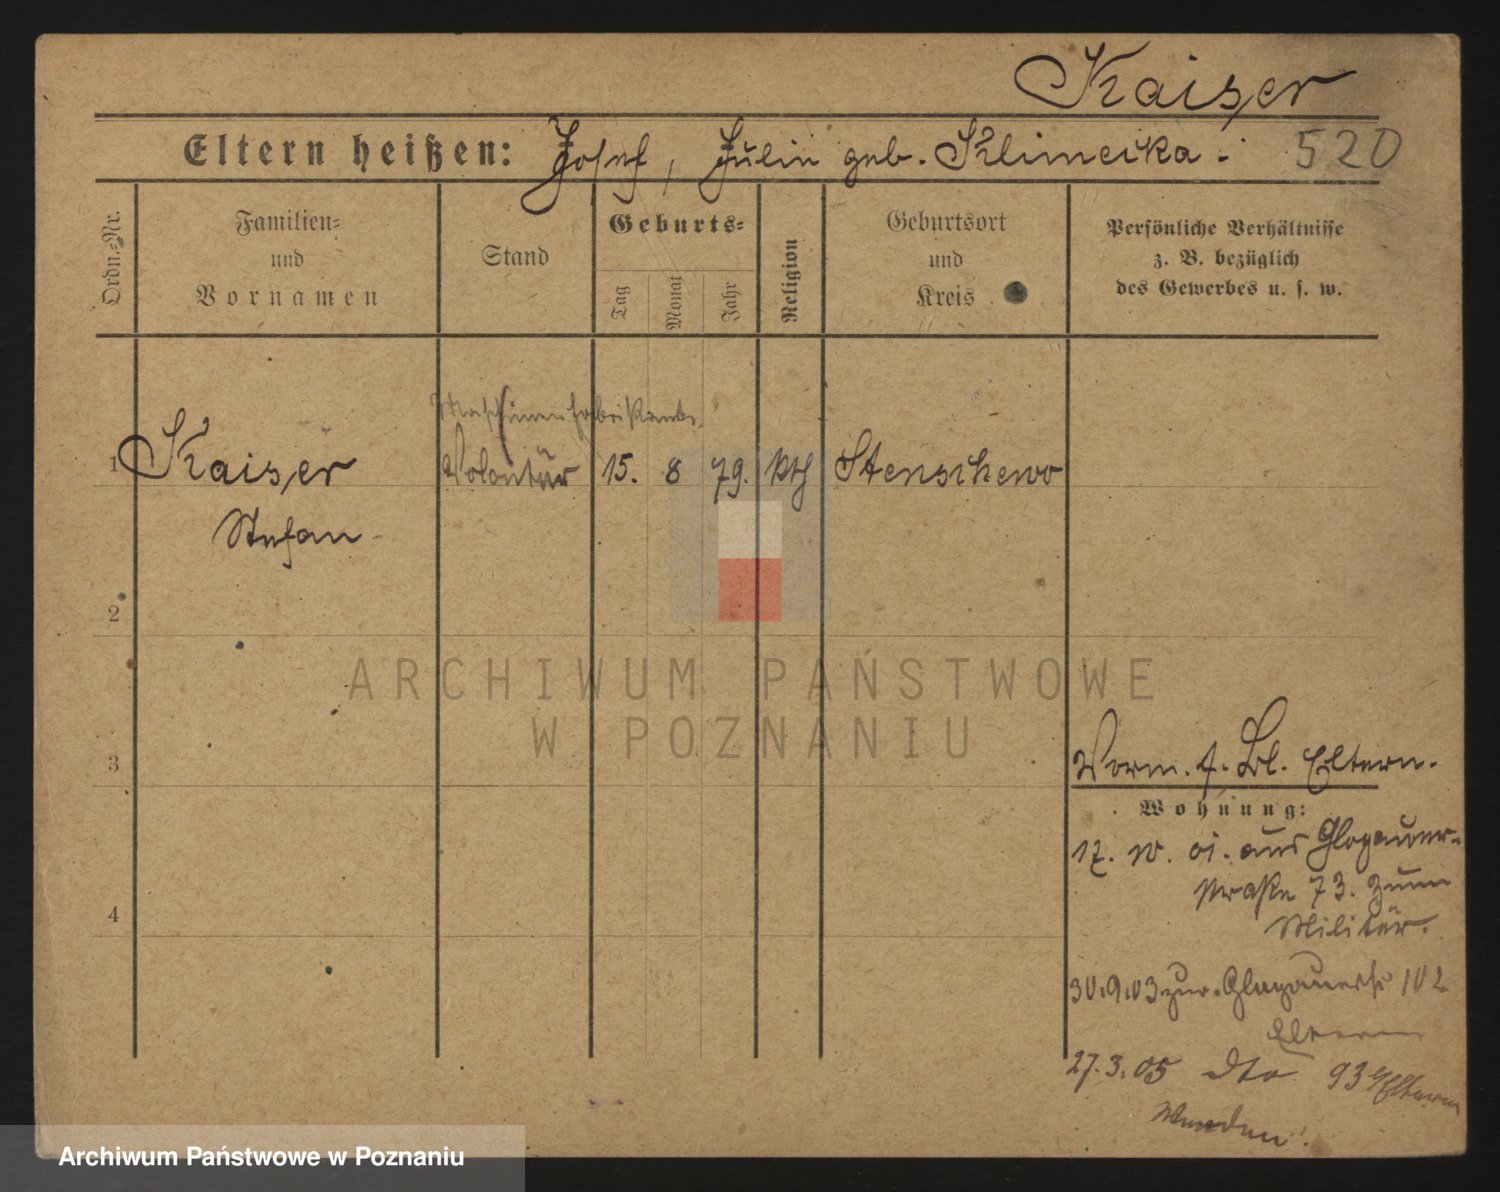 Kaiser
Eltern heißen: Josef, Julia geb. Klimecka. 520
Ordn.=Nr.
Familien=
und
Vornamen
Stand
Geburts=
Tag
Monat
Jahr
Religion
Geburtsort
und
Kreis
Persönliche Verhältnisse
z. B. bezüglich
des Gewerbes u. s. w.
Maschinenfabrikant
1 Kaiser Volontär 15. 8 79. kth Stenschewo
Stefan
2
ARCHIWUM PAŃSTWOWE
W POZNANIU
3
Vorm. f. Bl. Eltern.
Wohnung:
17. 10. 01. aus Glogauer-
straße 73. zum
Militär.
30.9.03 zur. Glogauerstr 102
Eltern
4
27.3.05 dto 93 b/Eltern
Archiwum Państwowe w Poznaniu